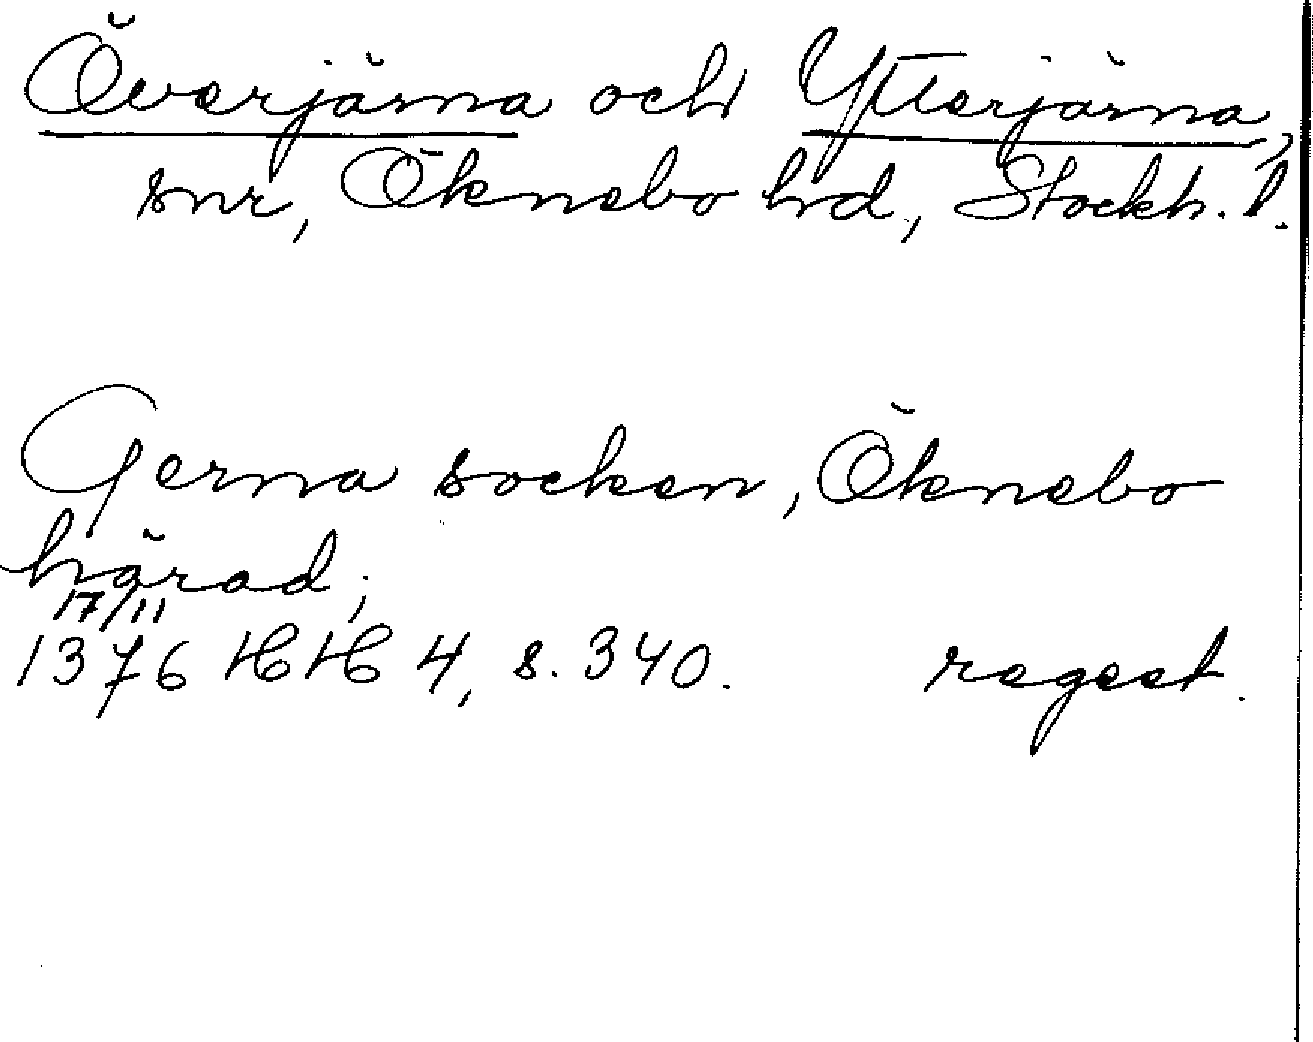 Överjärna och Ytterjärna,
snr, Öknebo hd, Stockh. l.
Gerna socken, Öknebo
härad;
17/11
1376 HH 4, s. 340. regest.